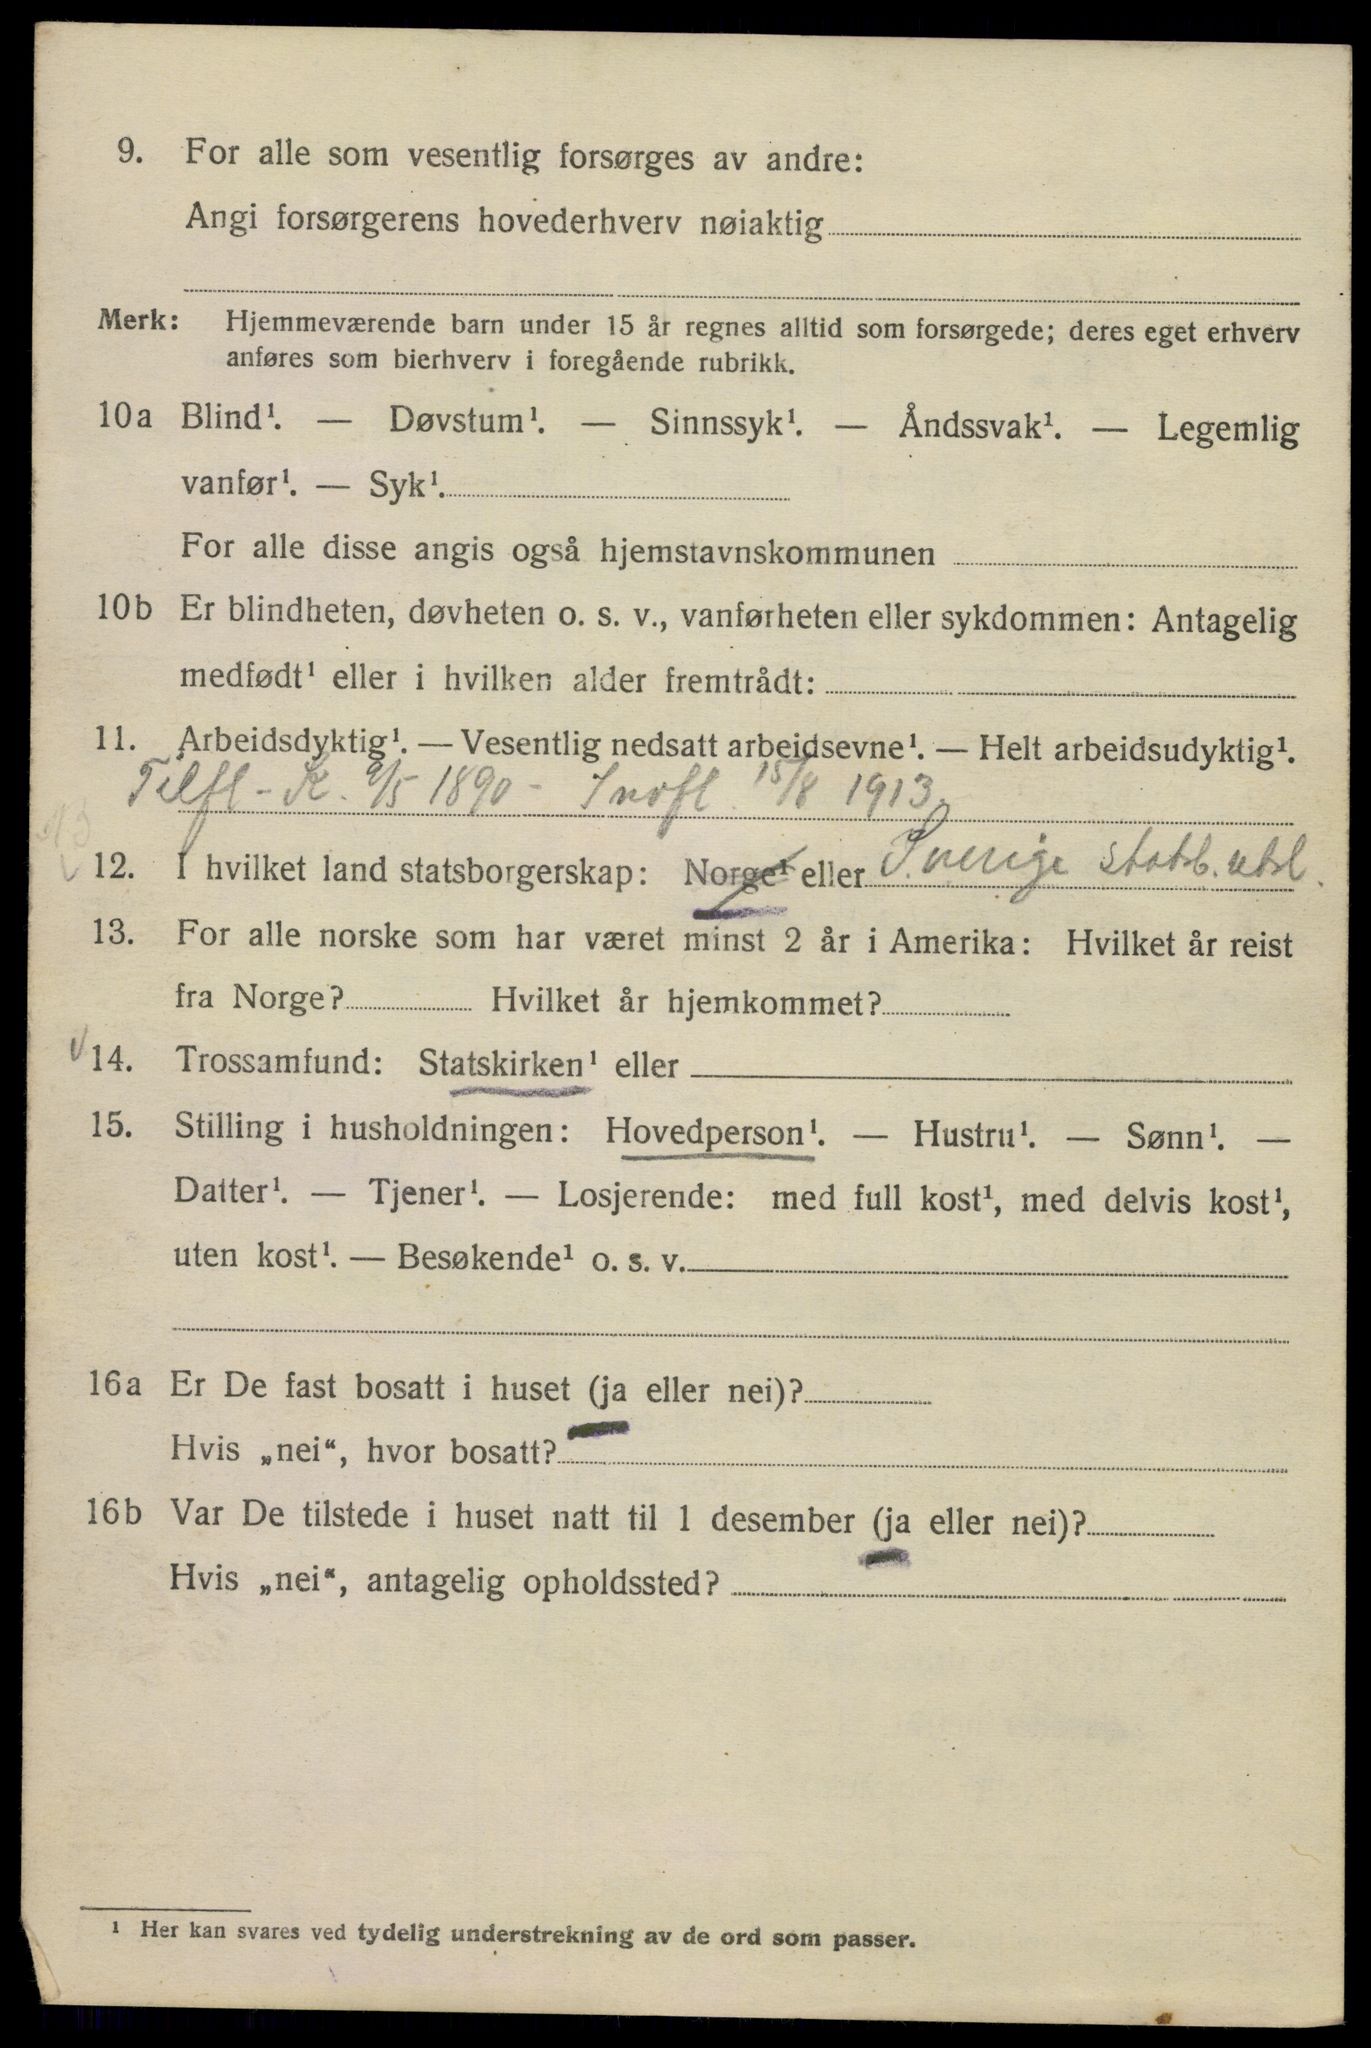 9. For alle som vesentlig forsørges av andre:
Angi forsørgerens hovederhverv nøiaktig
Merk: Hjemmeværende barn under 15 år regnes alltid som forsørgede; deres eget erhverv
anføres som bierhverv i foregående rubrikk.
10a Blind¹. — Døvstum¹. — Sinnssyk¹. — Åndssvak¹. — Legemlig
vanfør¹. — Syk¹.
For alle disse angis også hjemstavnskommunen
10b Er blindheten, døvheten o. s. v., vanførheten eller sykdommen: Antagelig
medfødt¹ eller i hvilken alder fremtrådt:
11. Arbeidsdyktig¹. — Vesentlig nedsatt arbeidsevne¹. — Helt arbeidsudyktig¹.
Tilfl - K. 9/5 1890 - Innfl. 15/8 1913
12. I hvilket land statsborgerskap: Norge¹ eller Sverige statsb. utsl.
13. For alle norske som har været minst 2 år i Amerika: Hvilket år reist
fra Norge? Hvilket år hjemkommet?
14. Trossamfund: Statskirken¹ eller
15. Stilling i husholdningen: Hovedperson¹. — Hustru¹. — Sønn¹. —
Datter¹. — Tjener¹. — Losjerende: med full kost¹, med delvis kost¹,
uten kost¹. — Besøkende¹ o. s. v.
16a Er De fast bosatt i huset (ja eller nei)?
Hvis „nei“, hvor bosatt?
16b Var De tilstede i huset natt til 1 desember (ja eller nei)?
Hvis „nei“, antagelig opholdssted?
¹ Her kan svares ved tydelig understrekning av de ord som passer.